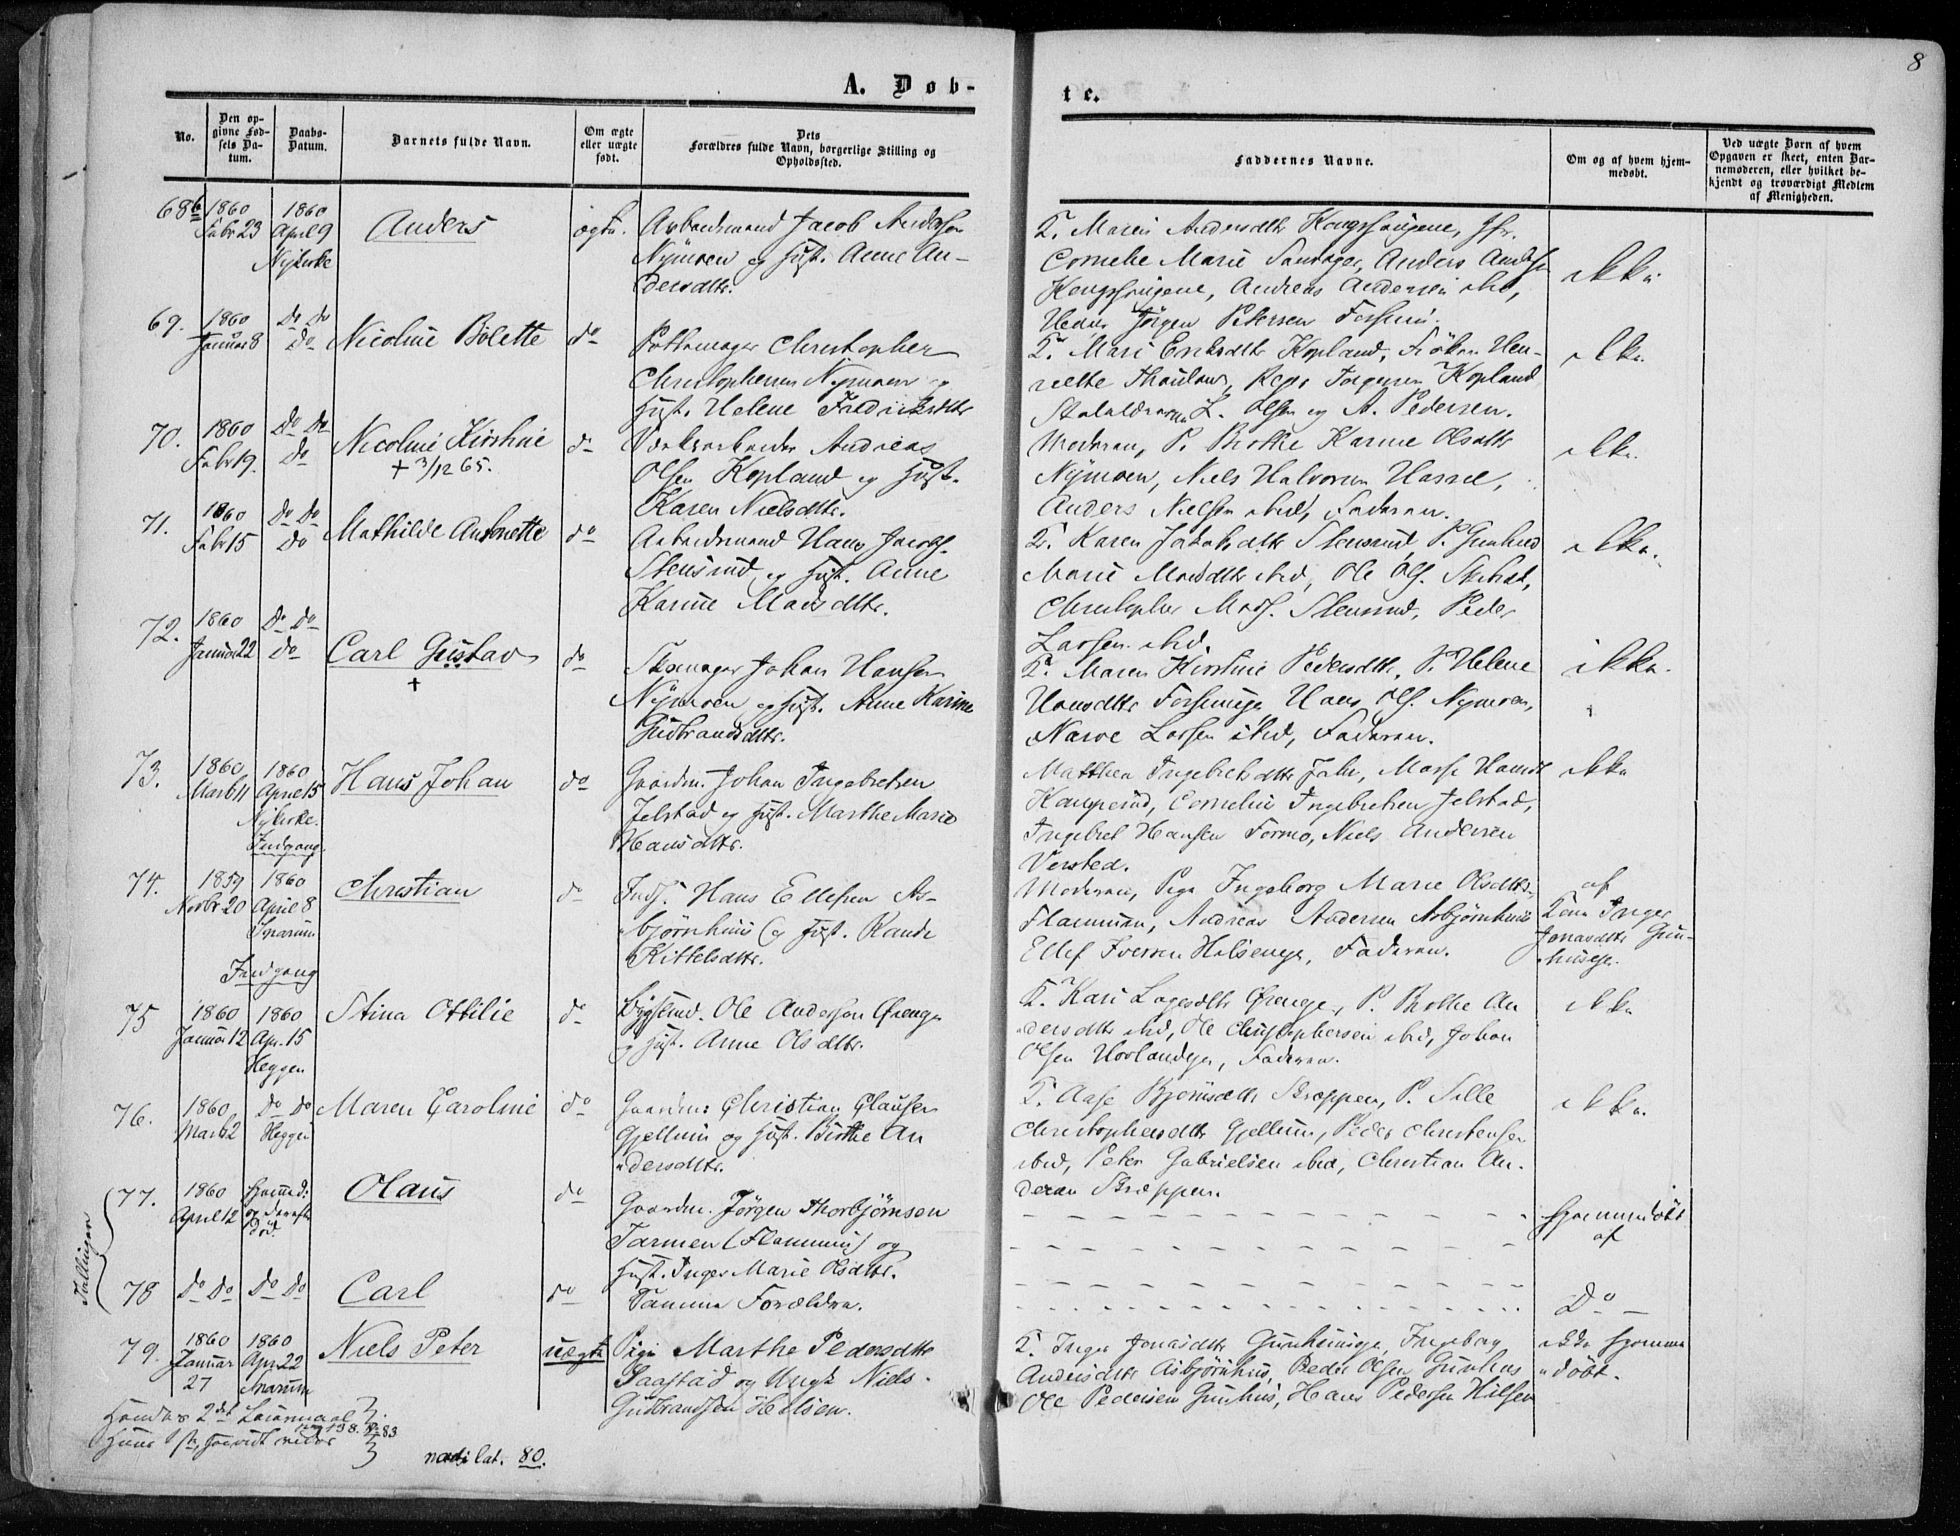 8
A. Døb-
te.
No.
Den op-
givne Fød-
sels Da-
tum.
Daabs-
Datum.
Barnets fulde Navn.
Om ægte
eller uægte
født.
Dets
Forældres fulde Navn, borgerlige Stilling og
Opholdssted.
Faddernes Navne.
Om og af hvem hjem-
medøbt.
Ved uægte Børn af hvem
Opgaven er skeet, enten Bar-
nemoderen, eller hvilket be-
kjendt og troværdigt Medlem
af Menigheden.
68
1860
Febr 23
1860
April 9
Nykirke
Anders
ægte.
Arbeidsmand Jacob Andersen
Nymoen og Hust. Anne An-
dersdtr.
F. Maren Andersdtr Kongshougene, Jfr.
Cornelie Marie Sandager, Anders Anders.
Kongshougene, Andreas Andersen ibid,
Peter Jørgen Petersen Fossum.
ikke
69.
1860
Januar 8
Do Do
Do
Nicoline Bolette
do
Pottemager Christopher
Christophersen Nymoen og
Hust. Helene Fredriksdtr
F. Mari Eriksdtr Kopland, Frøken Hen-
riette Thaulow, Peder Torgersen Kopland
L. Olsen og A. Pedersen.
ikke.
70.
1860
Febr 19.
Do Do
Do
Nicoline Kirstine
+ 3/12 65.
do
Værksarbeider Andreas
Olsen Kopland og Hust.
Karen Nielsdtr.
Moderen, P. Birthe Karine Olsdtr
Nymoen, Niels Halvorsen Hassel,
Anders Nielsen ibid, Faderen.
ikke.
71.
1860
Febr 15
Do Do
Do
Mathilde Antonette
do
Arbeidsmand Hans Jacobs.
Stensrud og Hust. Anne
Karine Madsdtr.
F. Karen Jakobsdtr Stensrud, P. Gunhild
Marie Madsdtr ibid, Ole Ols.
Christopher Mads. Stensrud, Peder
Larsen ibid.
ikke.
72.
1860
Januar 22
Do Do
Do
Carl Gustav
+
do
Skomager Johan Hansen
Nymoen og Hust. Anne Karine
Gudbrandsdtr.
F. Maren Kirstine Pedersdtr, P. Helene
Hansdtr Fossumeje, Hans Ols. Nymoen,
Narve Larsen ibid, Faderen.
ikke.
73.
1860
Marts 11
1860
April 15
Nykirke.
Indgang.
Hans Johan
do
Gaardm. Johan Ingebretsen
Jelstad og Hust. Marthe Marie
Hansdtr.
Mathea Ingebretsdtr Jahr, Masse Hansdtr
Komperud, Cornelius Ingebretsen Jelstad,
Ingebret Hansen Formo, Niels Andersen
Versted.
ikke
74.
1859
Novbr 20
1860
April 8
Snarum
Indgang
Christian
do
Inds. Hans Ellefsen As-
bjørnhuus og Hust. Randi
Kittelsdtr.
Moderen, Pige Ingeborg Marie Olsdtr
Flannum, Andreas Andersen Asbjørnhuus
Ellef Iversen Hilseneje, Faderen.
af
Kone Inger
Jonasdtr Gun-
huseje.
75
1860
Januar 12
1860
Apr. 15
Heggen
Stina Ottilie
do
Bygselmd. Ole Andersen Øreneje
og Hust. Anne Olsdtr.
F. Kari Lagesdtr Øreneje, P. Birthe An
dersdtr ibid, Ole Christophersen ibid, Johan
Olsen Hovlandeje, Faderen.
ikke
76.
1860
Marts 2
Do Do
Heggen
Maren Caroline
do
Gaardm: Christian Clausen
Gjellum og Hust. Birthe An
dersdtr.
F. Aase Bjørnsdtr Bræppen, P. Sille
Christophersdtr Gjellum, Peder Christensen
ibid, Peter Gabrielsen ibid, Christian An-
dersen Bræppen.
ikke.
Tvillinger
77.
1860
April 12
Hjemmed:
og derefter
død.
Olaus
do
Gaardm. Jørgen Thorbjørnsen
Tarmen (Flannum) og
Hust. Inger Marie Olsdtr.
Hjemmedøbt
af
78
Do Do
Do Do
Carl
do
Samme Forældre.
Do
79.
1860
Januar
27
1860
Apr 22
Snarum
Niels Peter
uægte
Pige Marthe Pedersdtr
Saastad og Ungk. Niels
Gudbrandsen Hilsen.
F. Inger Jonasdtr Gunhuuseje, Ingeborg
Andersdtr Asbjørnhus, Peder Olsen Gunhus
Ole Pedersen Gunhus, Hans Pedersen Hilsen
ikke hjemme
døbt.
Hendes 2det Leiermaal
Hans 1ste, saavidt vides
lat. 80.